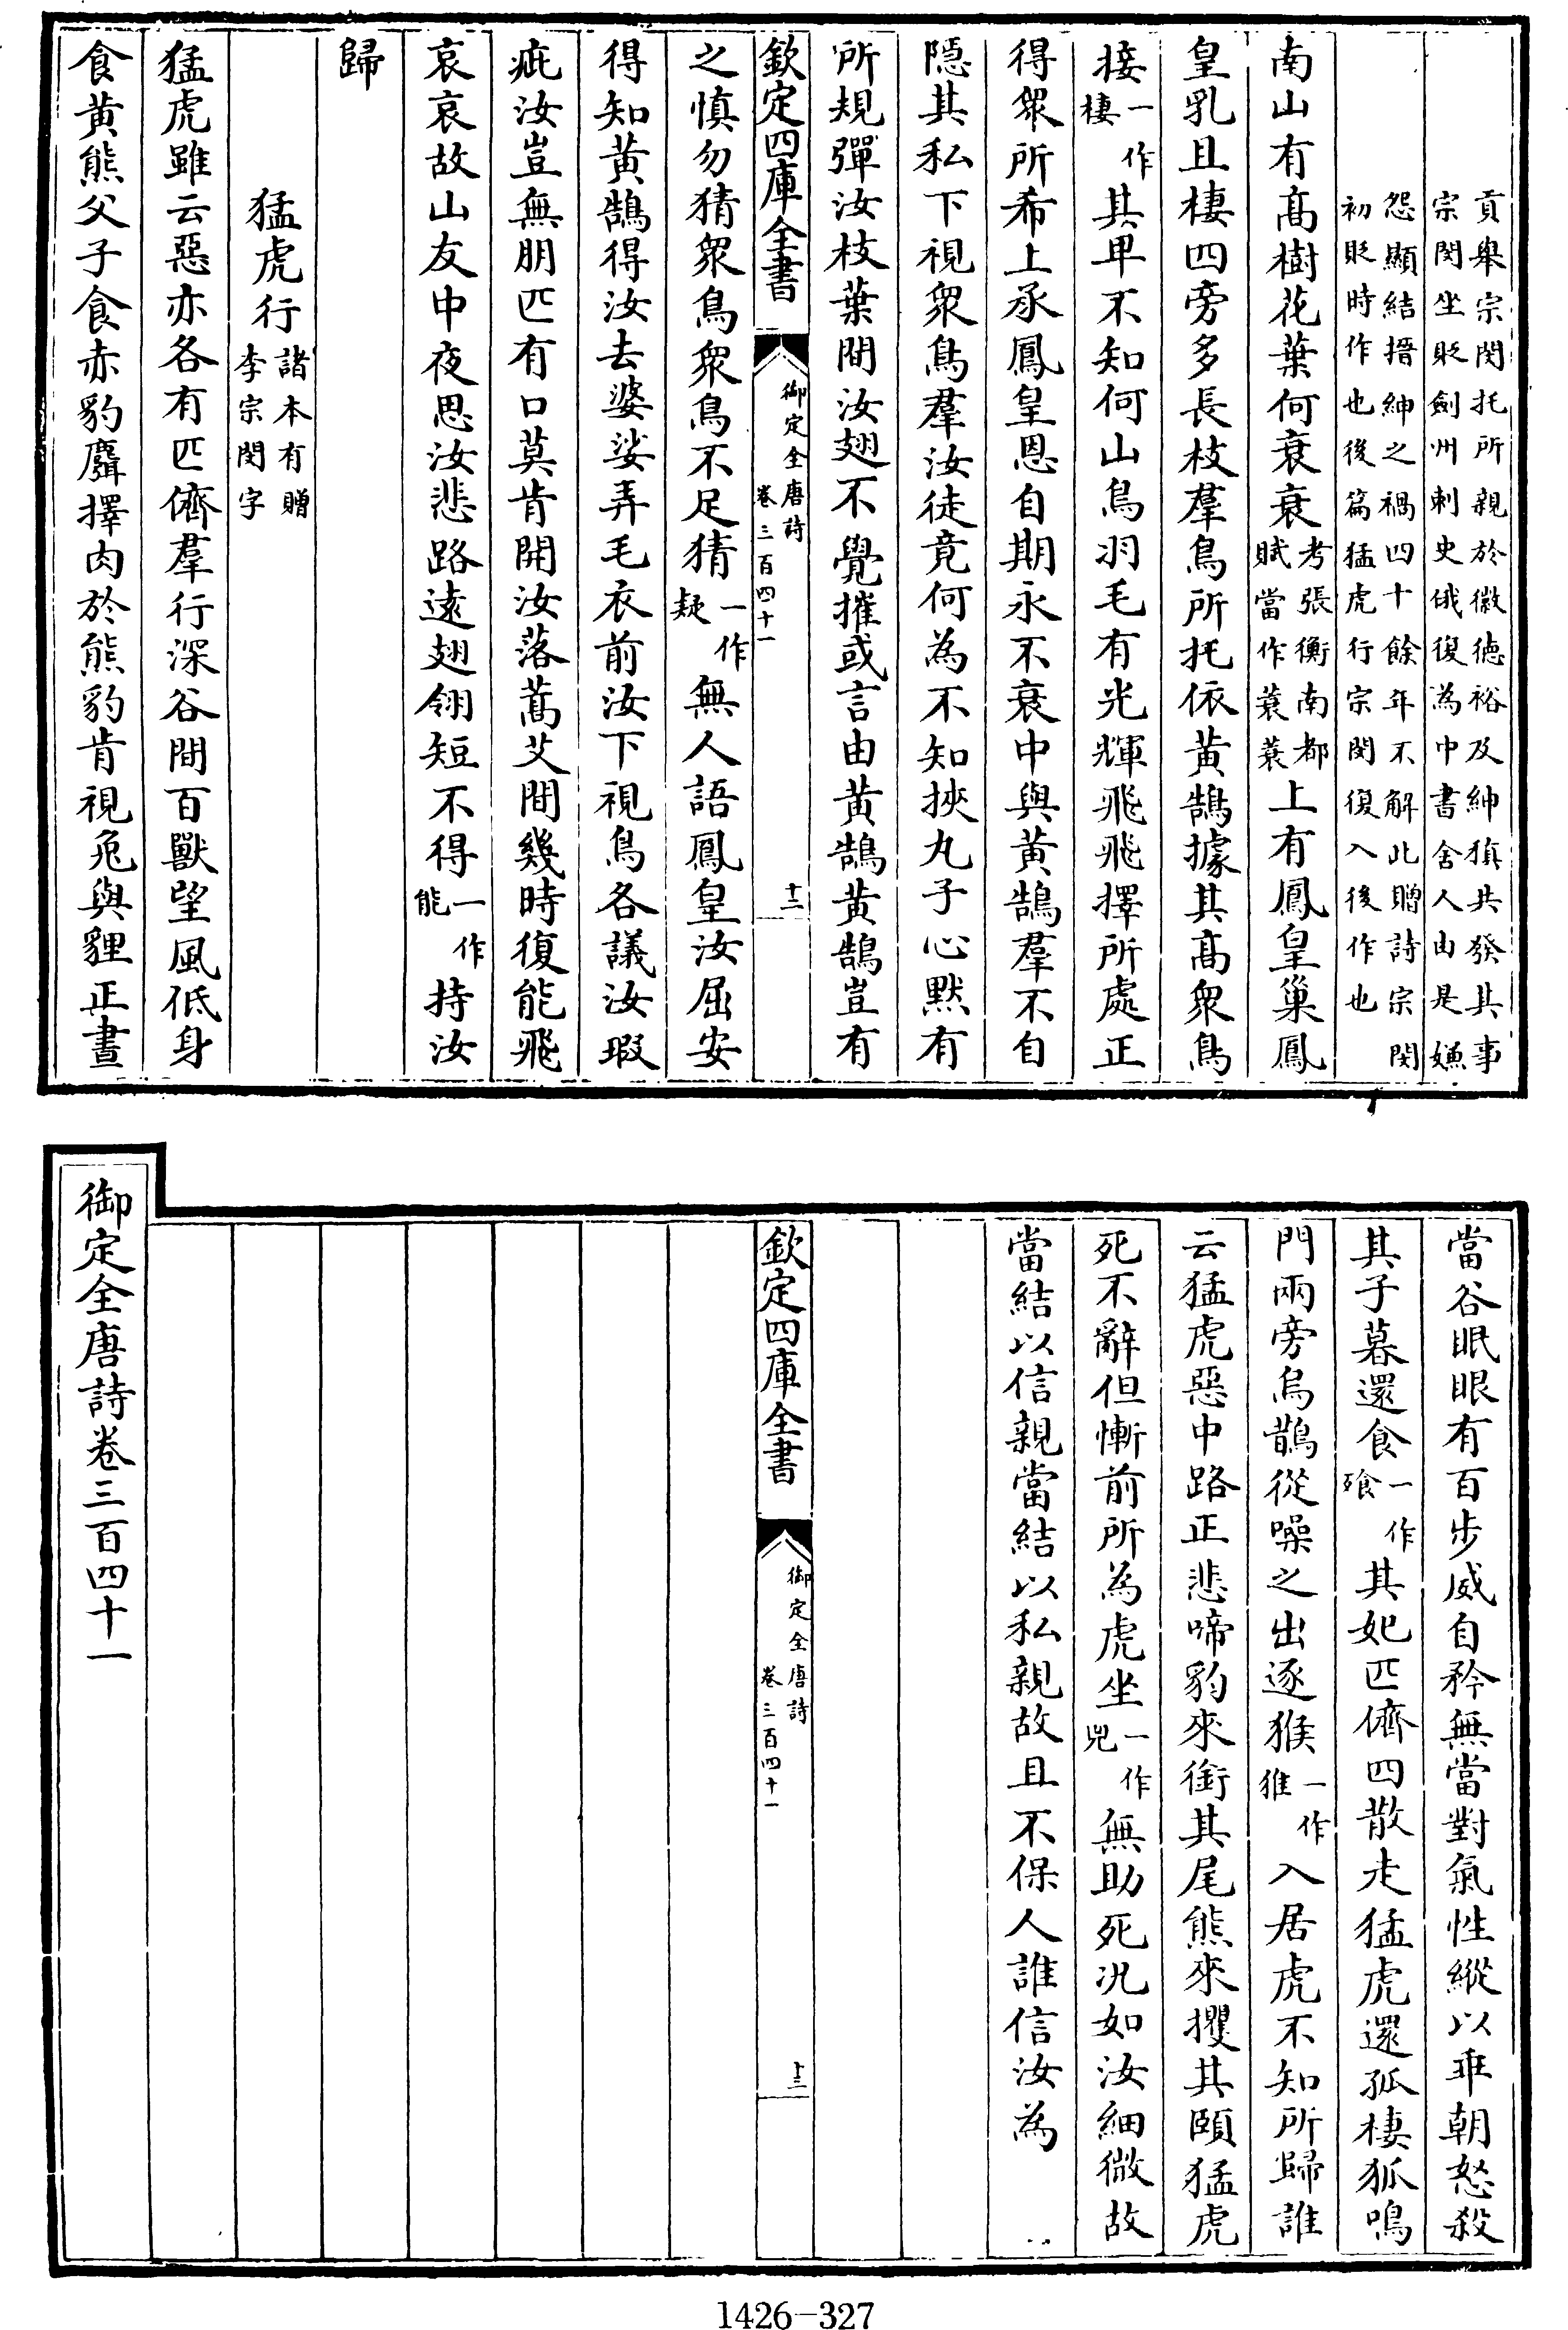 貢舉宗閔托所親於徽德裕及紳積共發其事
宗閔坐貶劍州刺史俄復為中書舍人由是嫌
怨顯結搢紳之禍四十餘年不解此贈詩宗閔
初貶時作也後篇猛虎行宗閔復入後作也
南山有高樹花葉何衰衰考張衡南都賦當作蓑蓑上有鳳皇巢鳳
皇乳且棲四旁多長枝羣鳥所托依黃鵠據其高眾鳥
接一作棲其卑不知何山鳥羽毛有光輝飛飛擇所處正
得眾所希上承鳳皇恩自期永不衰中與黃鵠羣不自
隱其私下視眾鳥羣汝徒竟何為不知挾丸子心默有
所規彈汝枝葉間汝翅不覺摧或言由黃鵠黃鵠豈有
欽定四庫全書
御定全唐詩
卷三百四十一
十二
之慎勿猜眾鳥眾鳥不足猜一作疑無人語鳳皇汝屈安
得知黃鵠得汝去婆娑弄毛衣前汝下視鳥各議汝瑕
疵汝豈無朋匹有口莫肯開汝落蒿艾間幾時復能飛
哀哀故山友中夜思汝悲路遠翅翎短不得一作能持汝
歸
猛虎行諸本有贈李宗閔字
猛虎雖云惡亦各有匹儕羣行深谷間百獸望風低身
食黃熊父子食赤豹麛擇肉於熊豹肯視兔與貍正晝
當谷眠眼有百步威自矜無當對氣性縱以乖朝怒殺
其子暮還食一作飱其妃匹儕四散走猛虎還孤棲狐鳴
門兩旁烏鵲從噪之出逐猴一作猚入居虎不知所歸誰
云猛虎惡中路正悲啼豹來銜其尾熊來攫其頤猛虎
死不辭但慚前所為虎坐一作兕無助死況如汝細微故
當結以信親當結以私親故且不保人誰信汝為
欽定四庫全書
御定全唐詩
卷三百四十一
十三
御定全唐詩卷三百四十一
1426-327